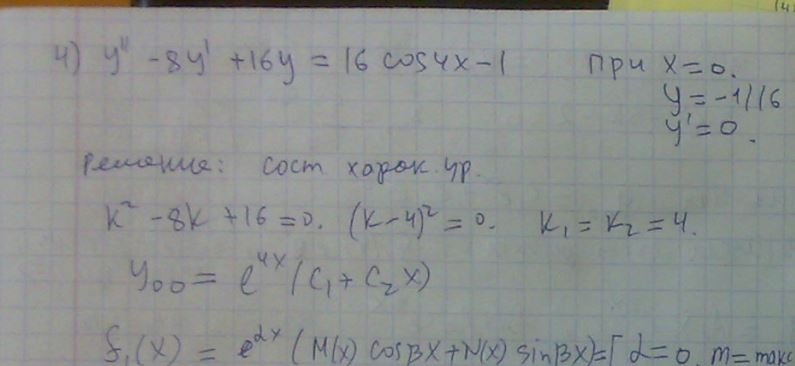 4) y'' - 8y' + 16y = 16 cos4x - 1 при x = 0.
y = -1/16
y' = 0.
Решение: сост харак. ур.
k² - 8k + 16 = 0. (k - 4)² = 0. k₁ = k₂ = 4.
y₀₀ = e^{4x} (C₁ + C₂ x)
f₁(x) = e^{αx} (M(x) cosβx + N(x) sinβx) = [ α = 0, m = макс